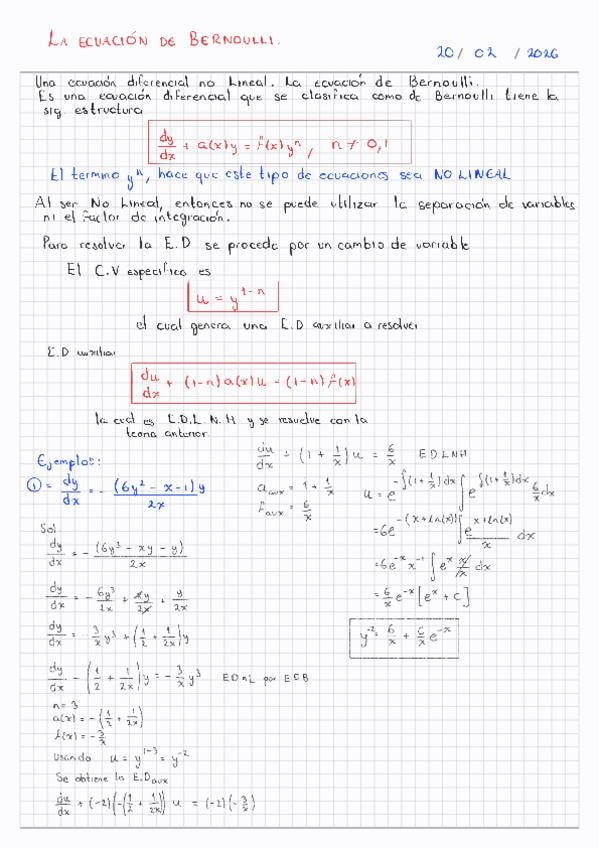 LA ECUACIÓN DE BERNOULLI.
20/ 02 / 2026
Una ecuación diferencial no Lineal. La ecuación de Bernoulli.
Es una ecuación diferencial que se clasifica como de Bernoulli tiene la
sig. estructura
dy/dx + a(x)y = f(x)yⁿ, n ≠ 0,1
El termino yⁿ, hace que este tipo de ecuaciones sea NO LINEAL
Al ser No Lineal, entonces no se puede utilizar la separación de variables
ni el factor de integración.
Para resolver la E.D se procede por un cambio de variable
El C.V especifico es
u = y^(1-n)
el cual genera una E.D auxiliar a resolver
E.D auxiliar
du/dx + (1-n)a(x)u = (1-n)f(x)
la cual es E.D.L.N.H y se resuelve con la
teoria anterior
Ejemplos:
① = dy/dx = - (6y² - x - 1)y / 2x
Sol
dy/dx = - (6y³ - xy - y) / 2x
dy/dx = - 6y³/2x + xy/2x + y/2x
dy/dx = - 3/x y³ + (1/2 + 1/2x)y
dy/dx - (1/2 + 1/2x)y = - 3/x y³ EDNL por ECB
n = 3
a(x) = -(1/2 + 1/2x)
f(x) = - 3/x
Usando u = y^(1-3) = y^(-2)
Se obtiene la E.D aux
du/dx + (-2)(-(1/2 + 1/2x)) u = (-2)(-3/x)
du/dx + (1 + 1/x)u = 6/x EDLNH
a aux = 1 + 1/x
f aux = 6/x
u = e^(-∫(1+1/x)dx) ∫ e^(∫(1+1/x)dx) 6/x dx
= 6e^(-(x+ln(x))) ∫ e^(x+ln(x)) / x dx
= 6e^(-x) x^(-1) ∫ e^x x/x dx
= 6/x e^(-x) [e^x + c]
y^(-2) = 6/x + c/x e^(-x)